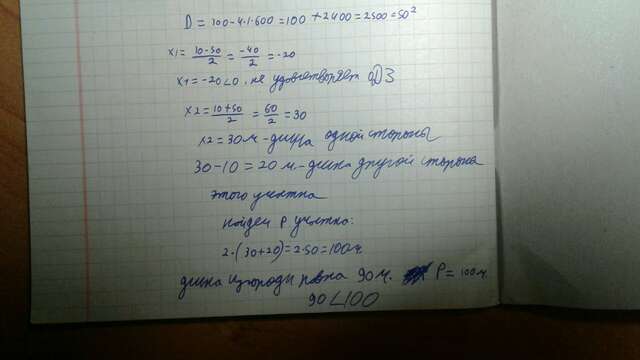 D = 100-4·1·600 = 100 + 2400 = 2500 = 50²
x1 = (10-50)/2 = -40/2 = -20
x1 = -20<0, не удовлетворяет ОДЗ
x2 = (10+50)/2 = 60/2 = 30
x2 = 30м - длина одной стороны
30-10 = 20 м. - длина другой стороны
этого участка
найдем P участка:
2·(30+20) = 2·50 = 100м.
длина изгороди равна 90 м. P = 100м.
90<100